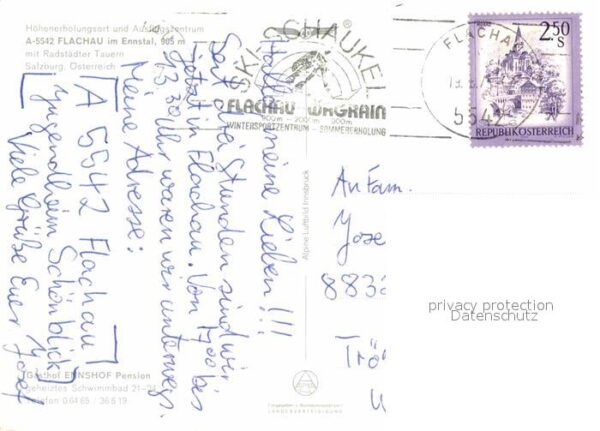 Höhenerholungsort und Ausflugszentrum
A-5542 FLACHAU im Ennstal, 905 m
mit Radstädter Tauern
Salzburg, Österreich
Hallo meine Lieben!!!
Seit drei Stunden sind wir
jetzt in Flachau. Von 7.00 bis
13.30 Uhr waren wir unterwegs.
Meine Adresse:
A 5542 Flachau
Jugendheim Schönblick
Viele Grüße Euer Josef
Gasthof ENNSHOF Pension
geheiztes Schwimmbad 21-24
Telefon 0 64 65 / 36 5 19
Alpine Luftbild Innsbruck
SKI-SCHAUKEL
FLACHAU WAGRAIN
900m - 2000m 900m
WINTERSPORTZENTRUM - SOMMERERHOLUNG
FLACHAU
5542
2.50
S
REPUBLIK ÖSTERREICH
An Fam.
Jose
883
Trö
privacy protection
Datenschutz